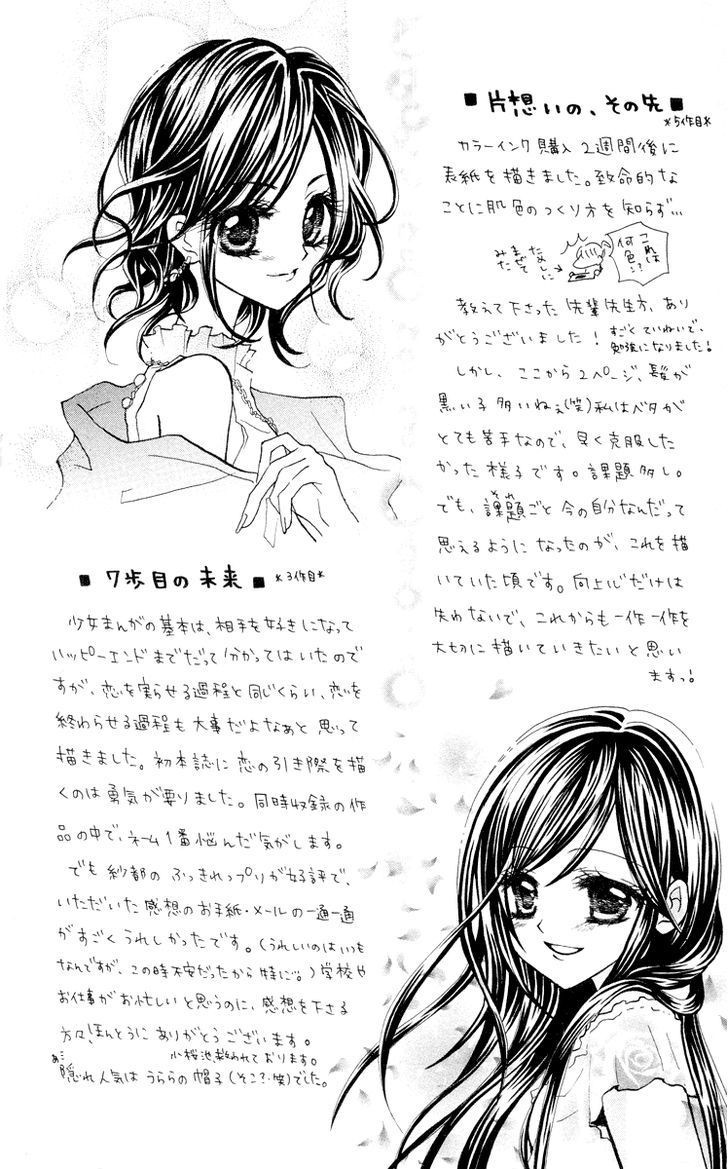 ■片想いの、その先■
*5作目*
カラーインク購入2週間後に
表紙を描きました。致命的な
ことに肌色のつくり方を知らず…
みまな たぜし てに
これは
何色!?
教えて下さった先輩先生方、あり
がとうございました!
すごくていねいで、
勉強になりました!
しかし、ここから2ページ、髪が
黒い子多いねぇ(笑)私はベタが
とても苦手なので、早く克服した
かった様子です。課題多し。
それ
でも、課題ごと今の自分なんだって
思えるようになったのが、これを描
いていた頃です。向上心だけは
失わないで、これからも一作一作を
大切に描いていきたいと思い
ますっ!
■7歩目の未来■
*3作目*
少女まんがの基本は、相手を好きになって
ハッピーエンドまでだって分かってはいたので
すが、恋を実らせる過程と同じくらい、恋を
終わらせる過程も大事だよなぁと思って
描きました。初本誌に恋の引き際を描
くのは勇気が要りました。同時収録の作
品の中で、ネーム1番悩んだ気がします。
でも紗都のふっきれっプリが好評で、
いただいた感想のお手紙・メールの一通一通
がすごくうれしかったです。(うれしいのはいつも
なんですが、この時不安だったから特に…。)学校や
お仕事がお忙しいと思うのに、感想を下さる
方々、ほんとうにありがとうございます。
小桜池救われております。
あ…
隠れ人気はうららの帽子(そこ?・笑)でした。